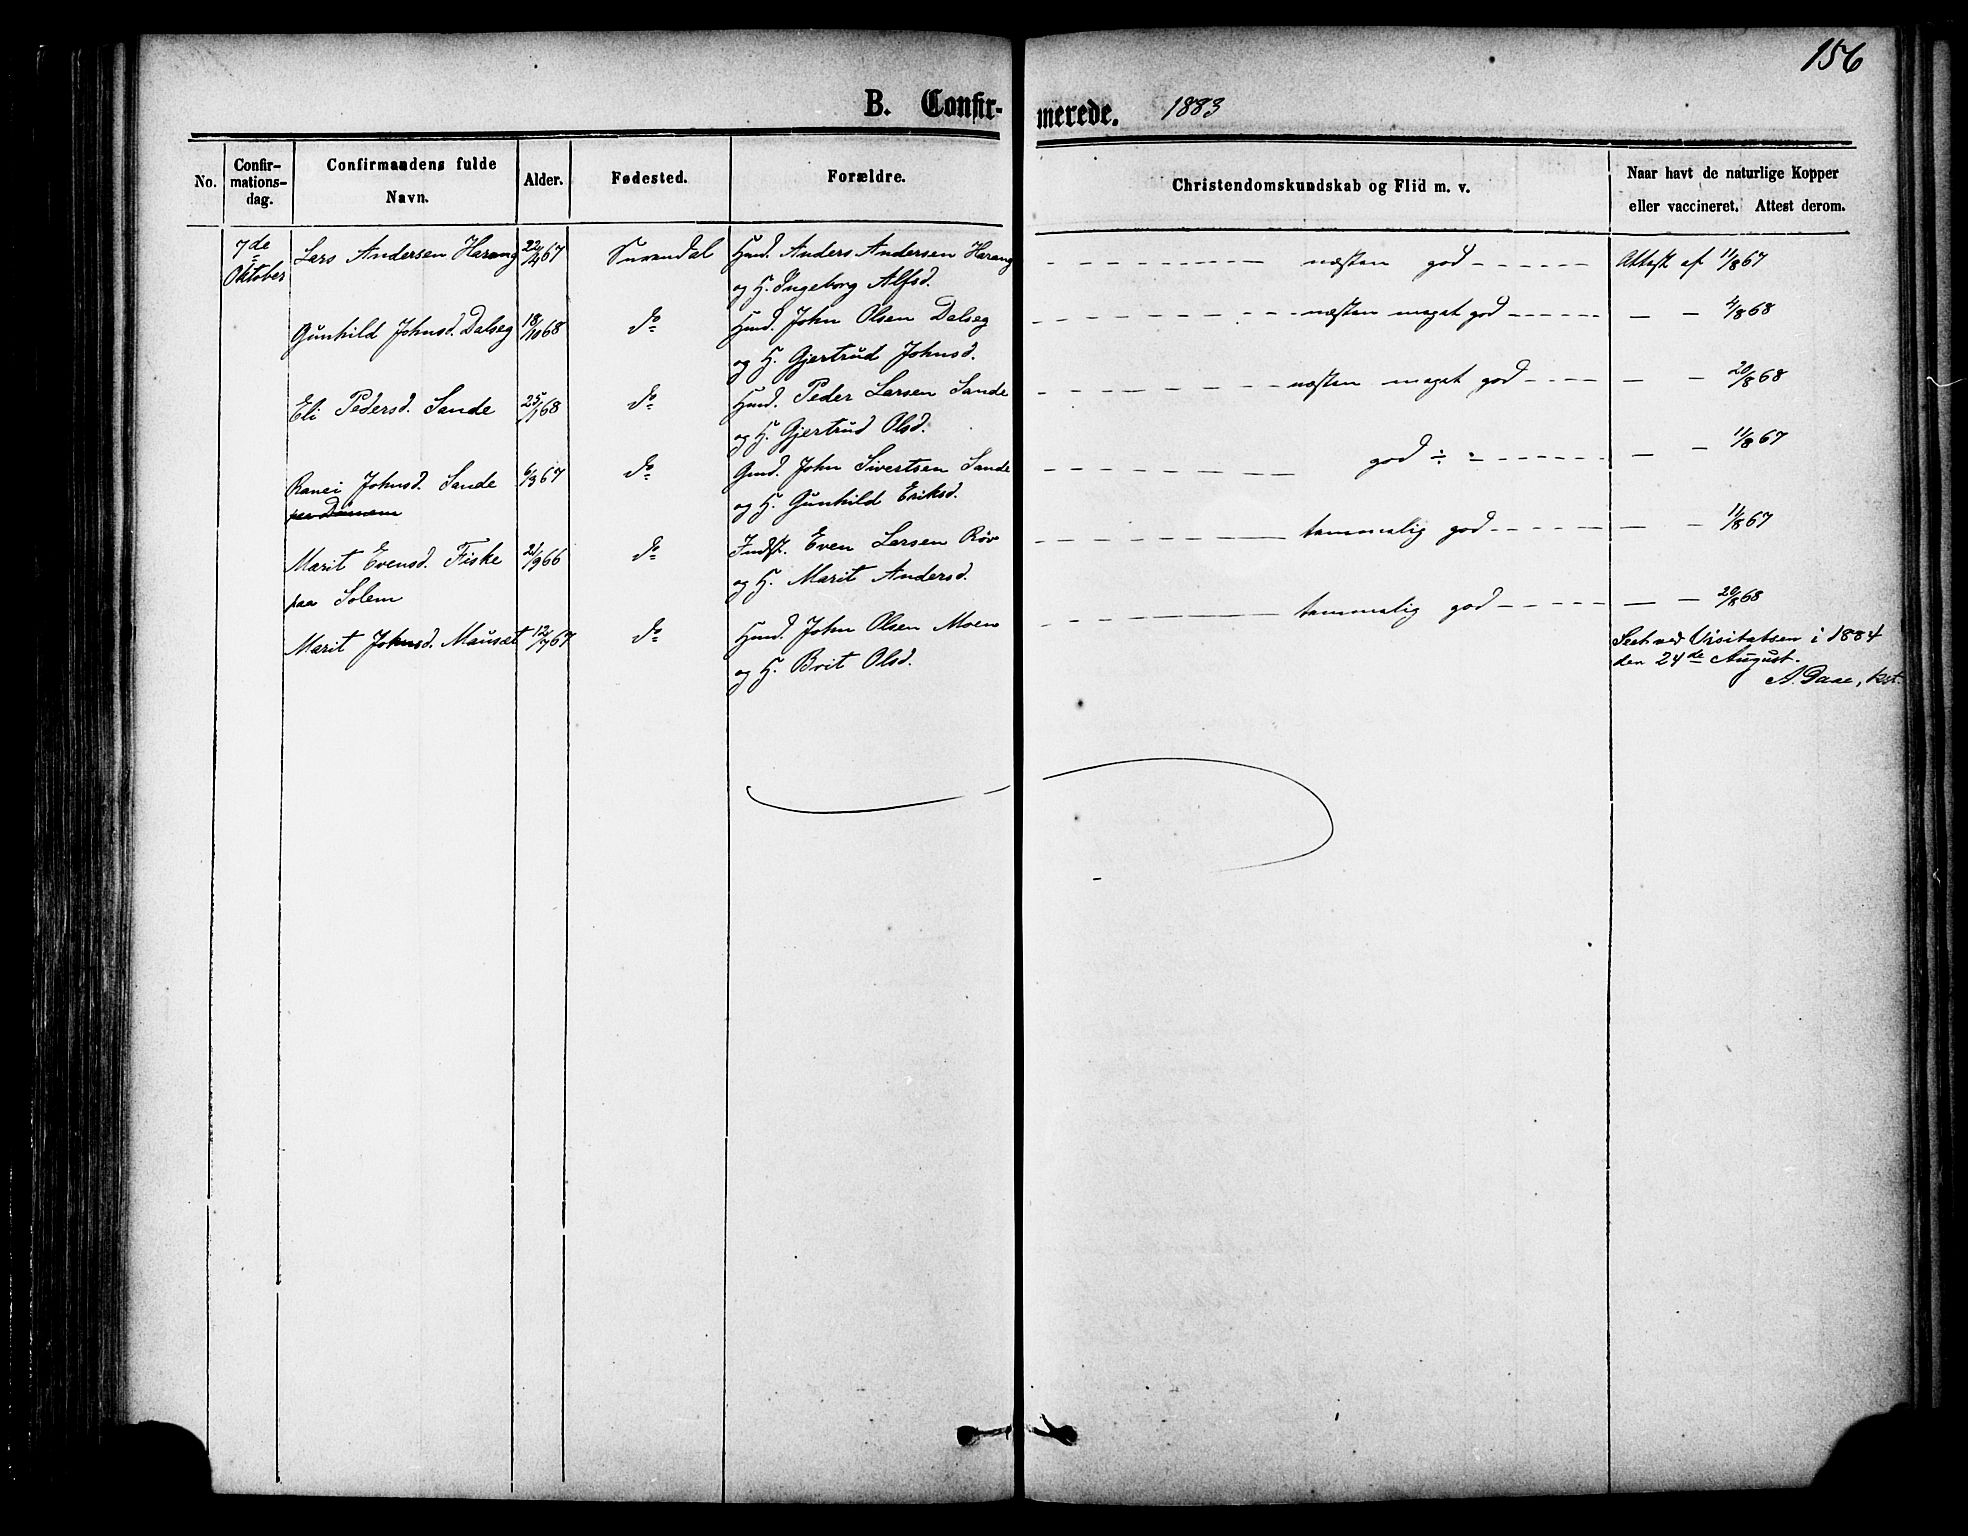 156
B. Confirmerede. 1883
No. Confirmationsdag. Confirmandens fulde Navn. Alder. Fødested. Forældre. Christendomskundskab og Flid m. v. Naar havt de naturlige Kopper eller vaccineret. Attest derom.
7de Oktober Lars Andersen Harang 22/4 67 Surendal Gmd. Anders Andersen Harang næsten god Attest af 11/8 67
og H. Ingeborg Alfsd.
Gunhild Johnsd. Dalseg 18/10 68 do Gmd. John Olsen Dalseg næsten meget god — — 4/8 68
og H. Gjertrud Johnsd.
Eli Pedersd. Sande 25/1 68 do Gmd. Peder Larsen Sande næsten meget god — — 20/8 68
og H. Gjertrud Olsd.
Ranei Johnsd. Sande 6/3 67 do Gmd. John Sivertsen Sande god ÷ — — 11/8 67
og H. Gunhild Eriksd.
Marit Evensd. Fiske 21/9 66 do Indst. Even Larsen Røv temmelig god — — 11/8 67
paa Solem og H. Marit Andersd.
Marit Johnsd. Mausæt 12/7 67 do Gmd. John Olsen Moen temmelig god — — 20/8 68
og H. Brit Olsd.
Seet ved Visitatsen i 1884
den 24de August.
A. Daae, kst.